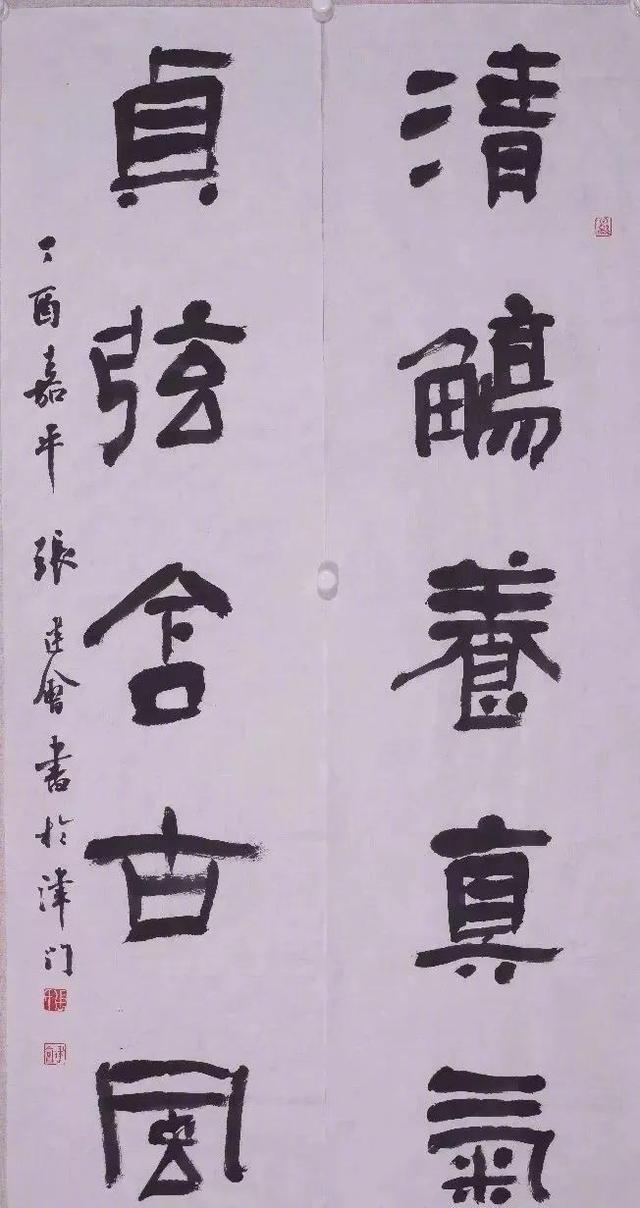 清觴養真氣
貞弦含古風
丁酉嘉平 張建會書於津门